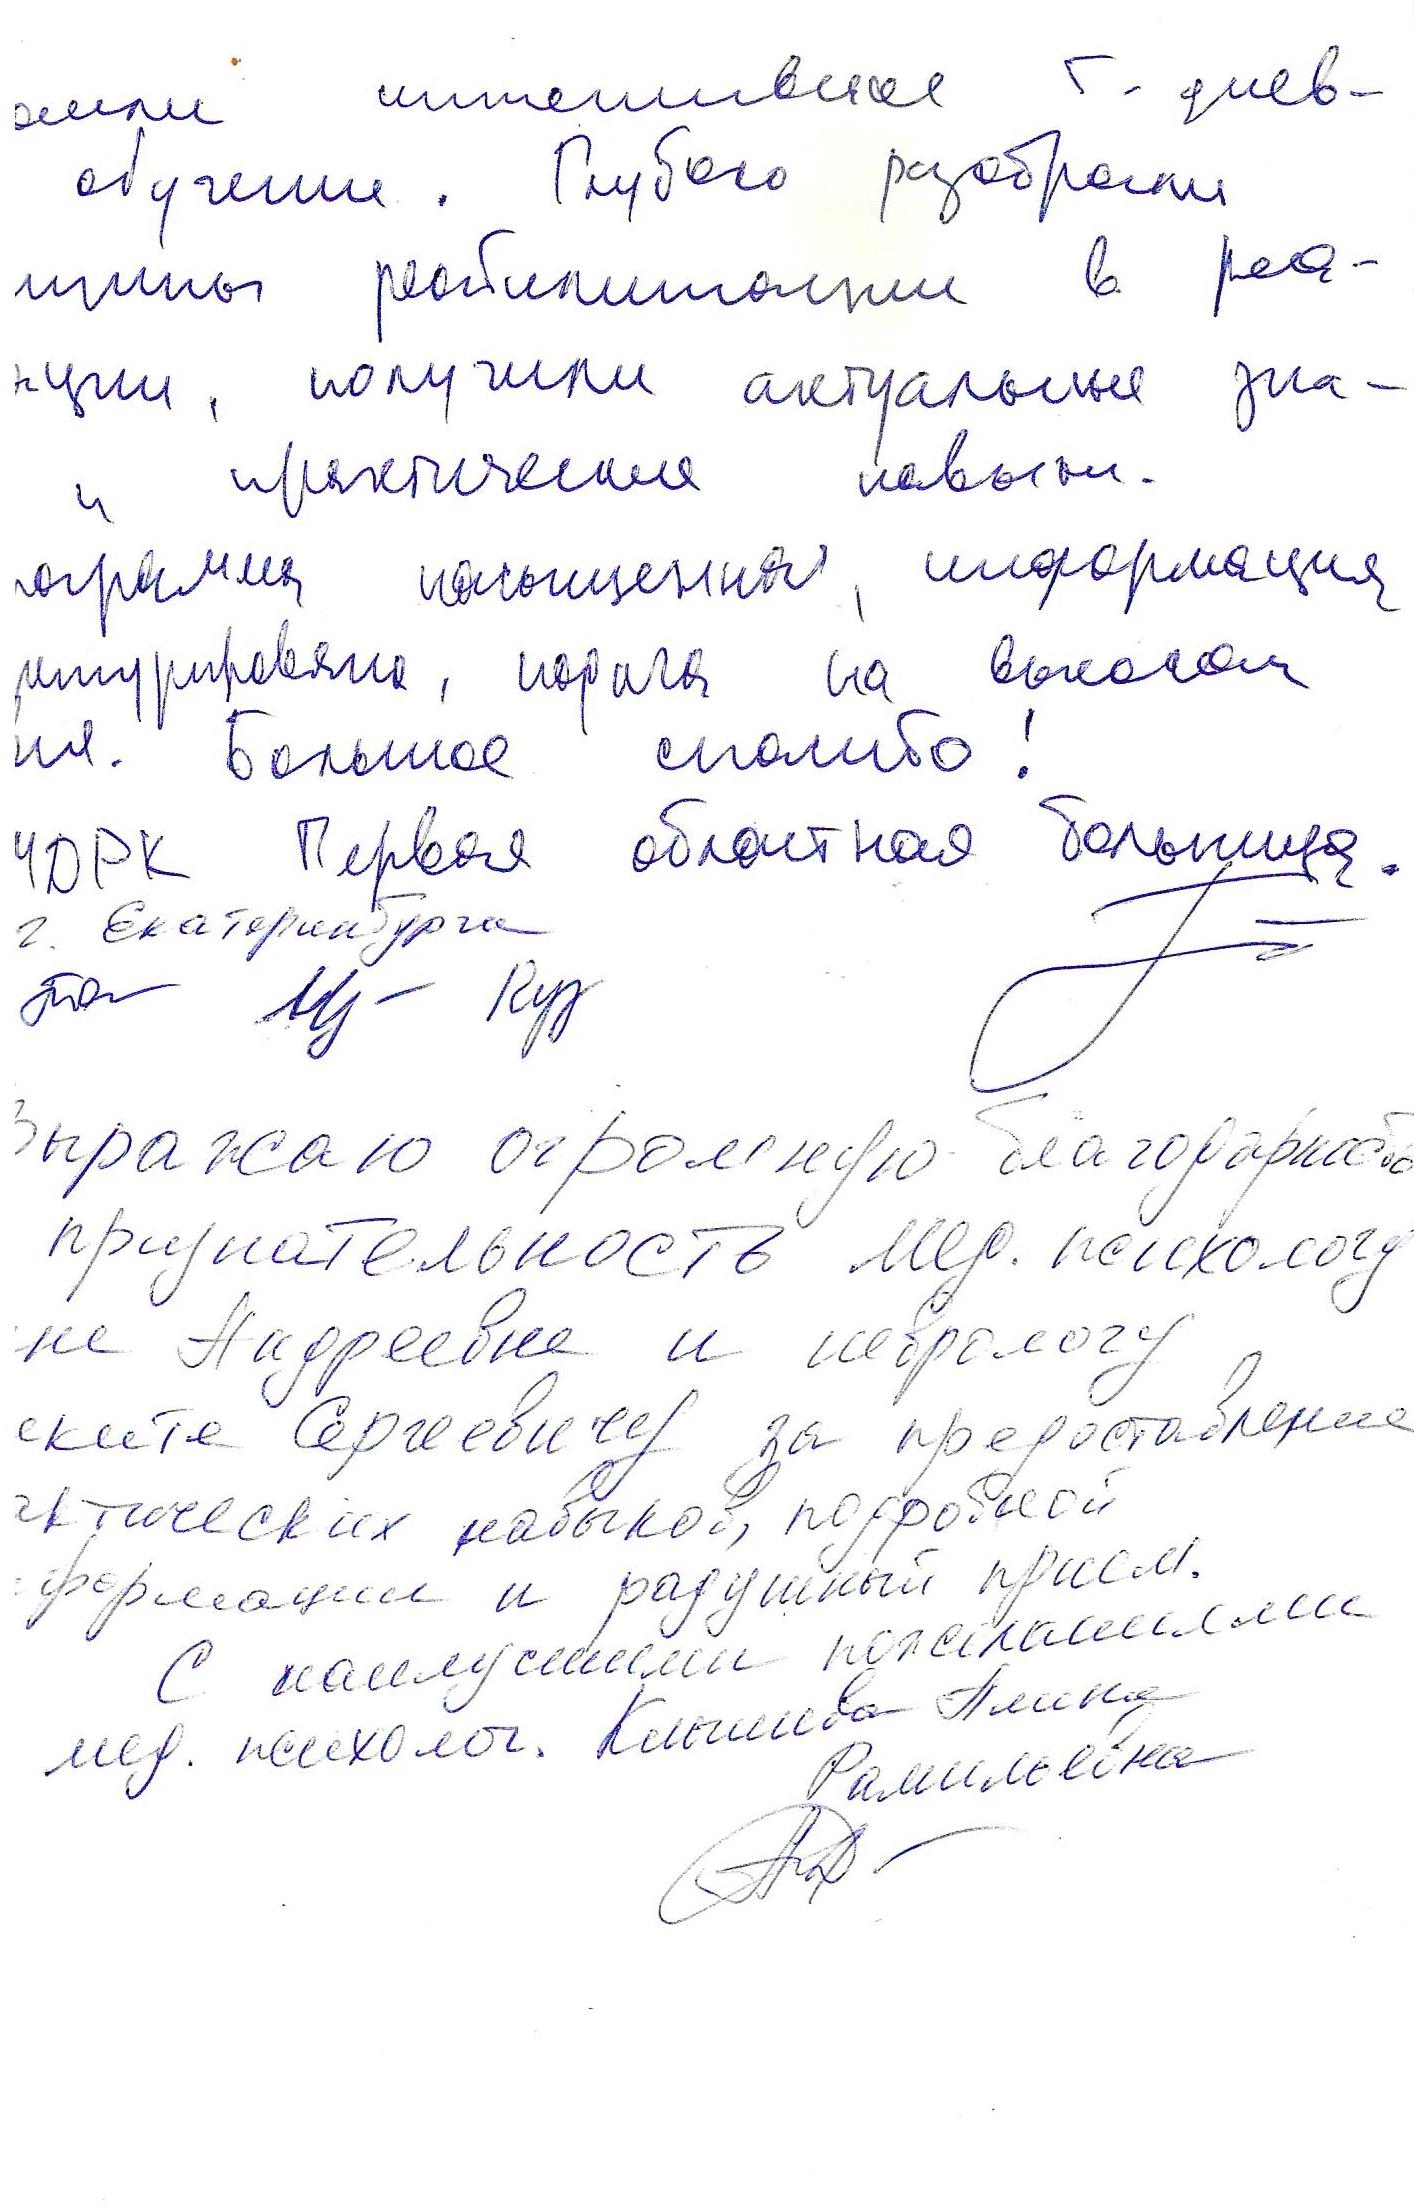 интенсивное 5-днев-
обучение. Глубоко разобрали
реабилитации в реа-
ции, получили актуальные зна-
и практические навыки.
ограмма насыщенная, информация
ктурирована, подача на высоком
не. Большое спасибо!
ЧДРК Первая областная больница.
г. Екатеринбурга
Куз
Выражаю огромную благодарность
признательность мед. психологу
не Андреевне и неврологу
ските Сергеевичу за предоставление
ктических навыков, подробной
формации и радушный прием.
С наилучшими пожеланиями
мед. психолог. Алина
Рамильевна